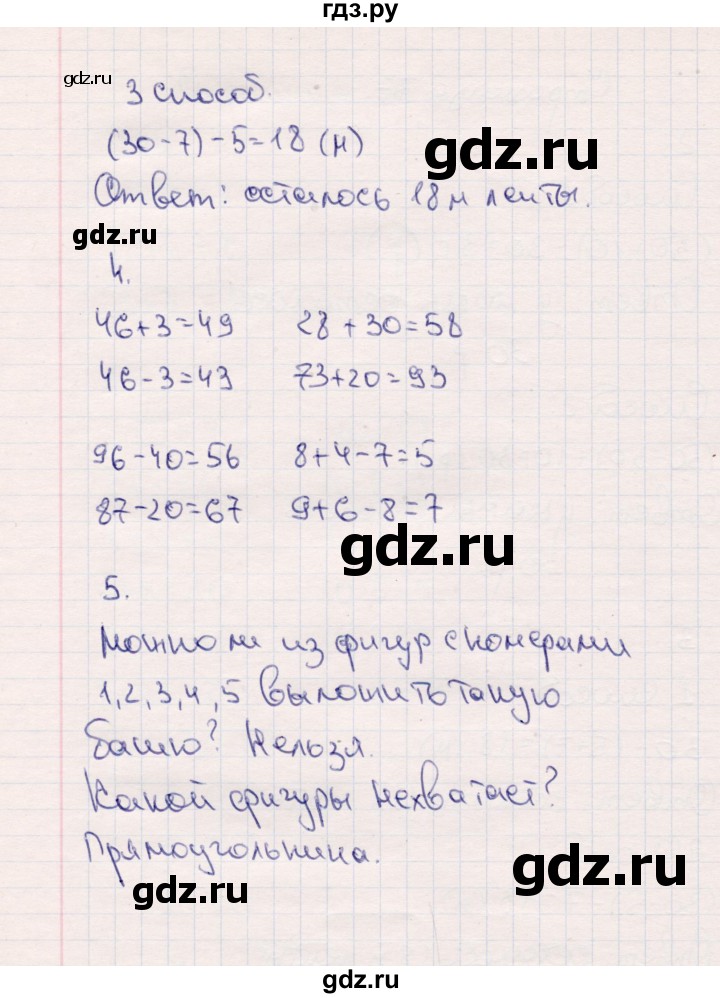 гдз.ру
gdz.ru
3 способ.
(30-7)-5=18 (м)
gdz.ru
Ответ: осталось 18 м ленты.
gdz.ru
4.
46+3=49 28+30=58
46-3=43 73+20=93
96-40=56 8+4-7=5
87-20=67 9+6-8=7
gdz.ru
5.
Можно ли из фигур с номерами
1, 2, 3, 4, 5 выложить такую
башню? Нельзя.
Какой фигуры не хватает?
Прямоугольника.
gdz.ru
gdz.ru
gdz.ru